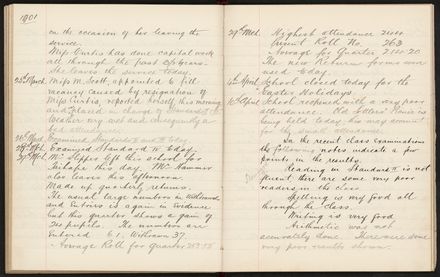 1901
on the occasion of her leaving the
service.
Miss Curtis has done capital work
all through the past years.
She leaves the service today.
25th March. Miss M. Scott, appointed to fill
vacancy caused by resignation of
Miss Curtis, reported herself this morning
and placed in charge of
Weather very wet and consequently a
bad attendance.
Examined Standard II today
Examined Standard IV today.
29th Mch. left this school for
Taihape this day. Mr.
also leaves this afternoon
Made up quarterly returns.
The usual large numbers in Withdrawals
and Entries is again in evidence
but this quarter shows a gain of
pupils. The numbers are
Entered 61, Withdrawn 37
Average Roll for Quarter
29th Mch. Highest attendance 244
Present Roll No. 263
Average for Quarter 214.20
The new Return forms were
used today.
4th April School closed today for the
Easter Holidays.
10th April School reopened with a very poor
attendance. Old Settlers' Union is
being held today & may account
for the small attendance.
In the recent class examinations
the following notes indicate a few
points in the results.
Reading in Standard II is not
good there are some very poor
readers in the class
Spelling is very good all
through the class
Writing is very good
Arithmetic was not
accurately done. There were some
very poor results shown.